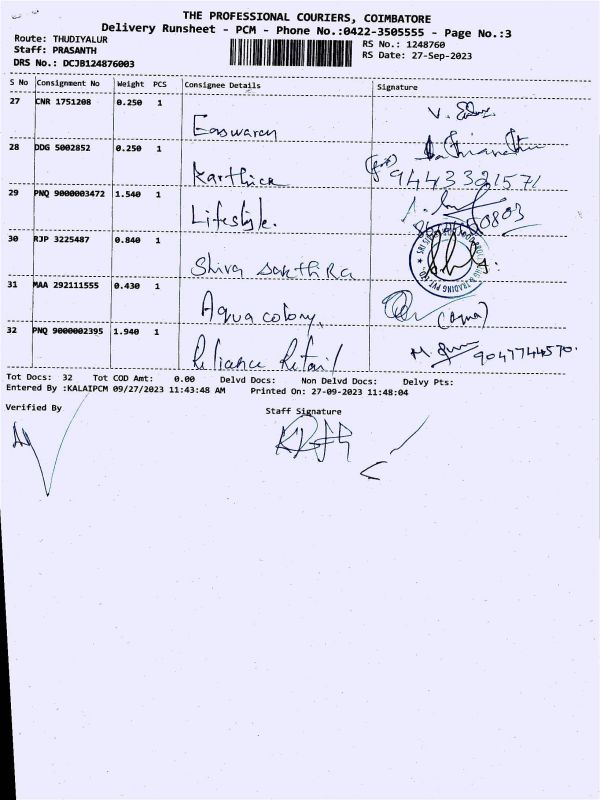 THE PROFESSIONAL COURIERS, COIMBATORE
Delivery Runsheet - PCM - Phone No.:0422-3505555 - Page No.:3
Route: THUDIYALUR
Staff: PRASANTH
DRS No.: DCJB124876003
RS No.: 1248760
RS Date: 27-Sep-2023
S No Consignment No Weight PCS Consignee Details Signature
27 CNR 1751208 0.250 1 Easwaran
28 DDG 5002852 0.250 1 Karthica 9443321571
29 PNQ 9000003472 1.540 1 Lifestyle.
30 RJP 3225487 0.840 1 Shiva Sakthi
31 MAA 292111555 0.430 1 Aqua colony,
32 PNQ 9000002395 1.940 1 Reliance Retail 9047744570.
Tot Docs: 32 Tot COD Amt: 0.00 Delvd Docs: Non Delvd Docs: Delvy Pts:
Entered By :KALAIPCM 09/27/2023 11:43:48 AM Printed On: 27-09-2023 11:48:04
Verified By
Staff Signature